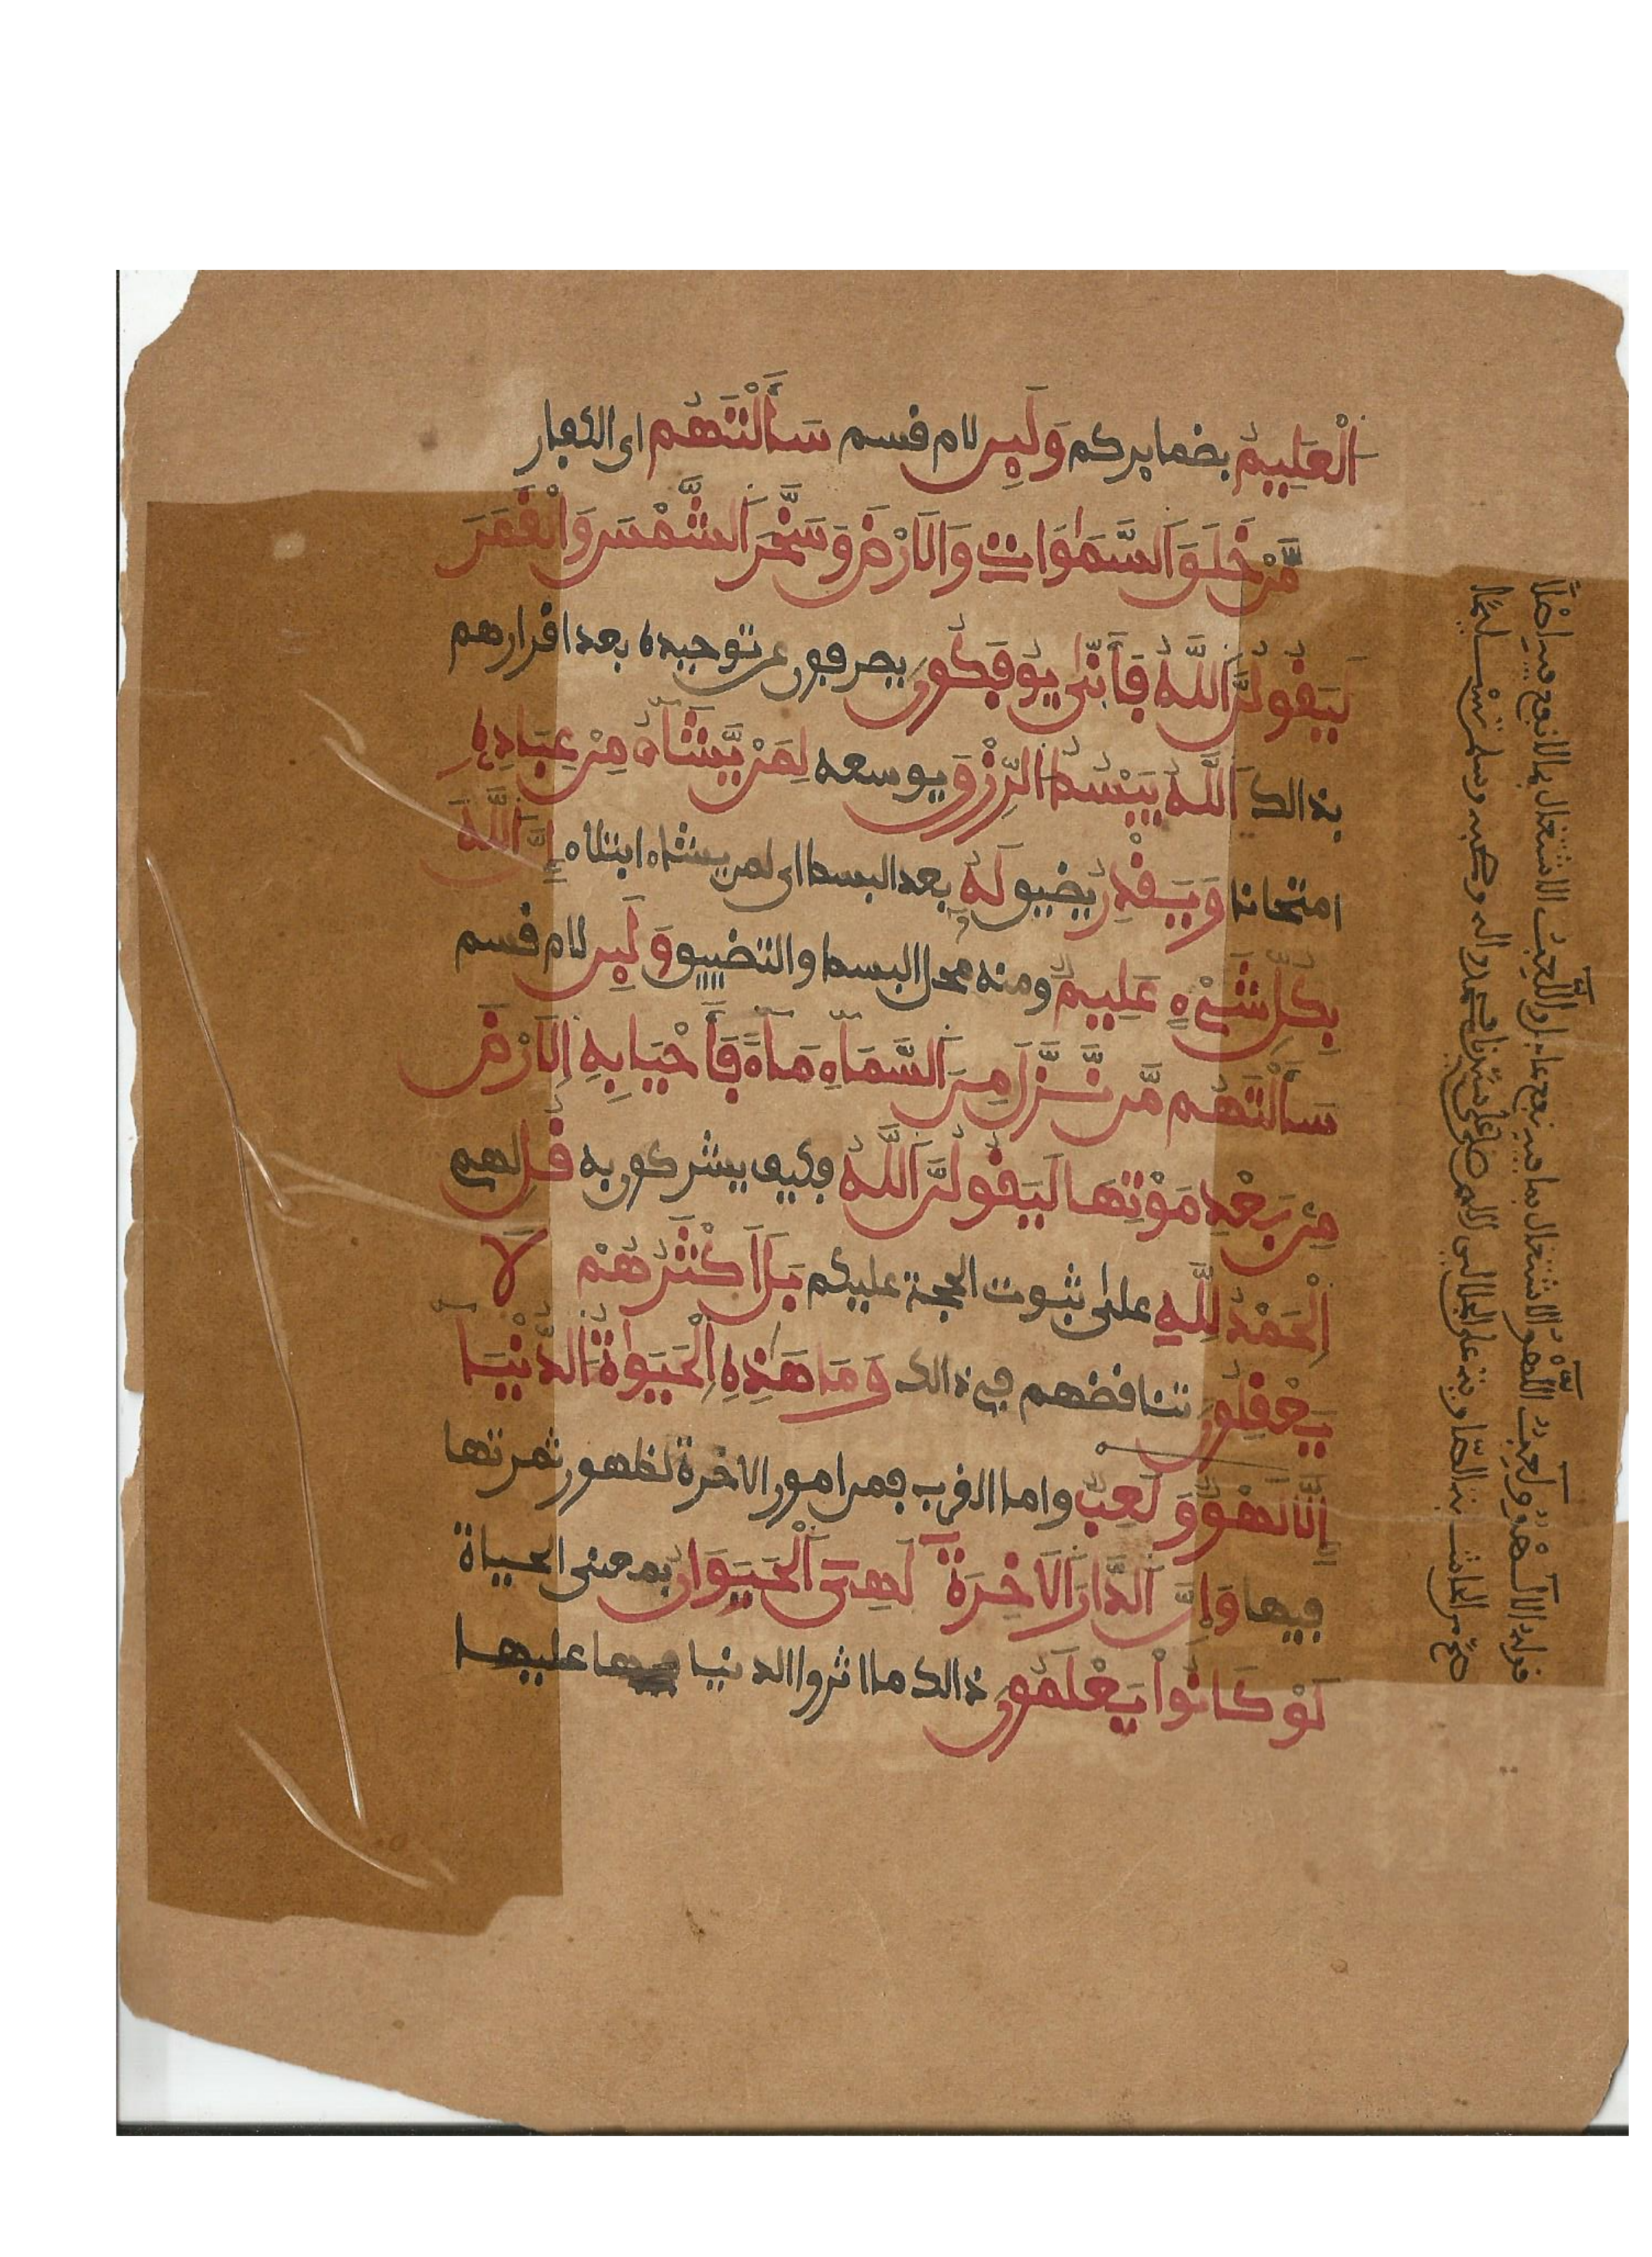 اَ۬لْعَلِيمُ بضمايركم وَلَئِن لام قسم سَأَلْتَهُم اى الكفار
مَّنْ خَلَقَ اَ۬لسَّمَٰوَاتِ وَالَارْضَ وَسَخَّرَ اَ۬لشَّمْسَ وَالْقَمَرَ
لَيَقُولُنَّ اَ۬للَّهُ فَأَنّىٰ يُوفَكُونَ يصرفون عن توحيده بعد اقرارهم
بذالك اَ۬للَّهُ يَبْسُطُ اُ۬لرِّزْقَ يوسعه لِمَنْ يَّشَآءُ مِنْ عِبَادِهِ
امتحانا وَيَقْدِرُ يضيق لَهُ بعد البسط اى لمن يشاء ابتلاء إِنَّ اَ۬للَّهَ
بِكُلِّ شَيْءٍ عَلِيمٌ ومنه محل البسط والتضييق وَلَئِن لام قسم
سَأَلْتَهُم مَّن نَّزَّلَ مِنَ اَ۬لسَّمَآءِ مَآءً فَأَحْيَا بِهِ اِ۬لَارْضَ
مِنۢ بَعْدِ مَوْتِهَا لَيَقُولُنَّ اَ۬للَّهُ فكيف يشركون به قُلِ لهم
اِ۬لْحَمْدُ لِلَّهِ على ثبوت الحجة عليكم بَلَ اَكْثَرُهُمْ لَا
يَعْقِلُونَ تناقضهم في ذالك وَمَا هَٰذِهِ اِ۬لْحَيَوٰةُ اُ۬لدُّنْيَا
إِلَّا لَهْوٌ وَلَعِبٌ واما القرب فمن امور الاخرة لظهور ثمرتها
فيها وَإِنَّ اَ۬لدَّارَ اَ۬لَاخِرَةَ لَهِيَ اَ۬لْحَيَوَانُ بمعنى الحياة
لَوْ كَانُواْ يَعْلَمُونَ ذالك ما اثروا الدنيا عليها
قوله الا لهو ولعب اللهو الاشتغال بما فيه نفع عاجل واللعب الاشتغال بما لا نفع فيه اصلا